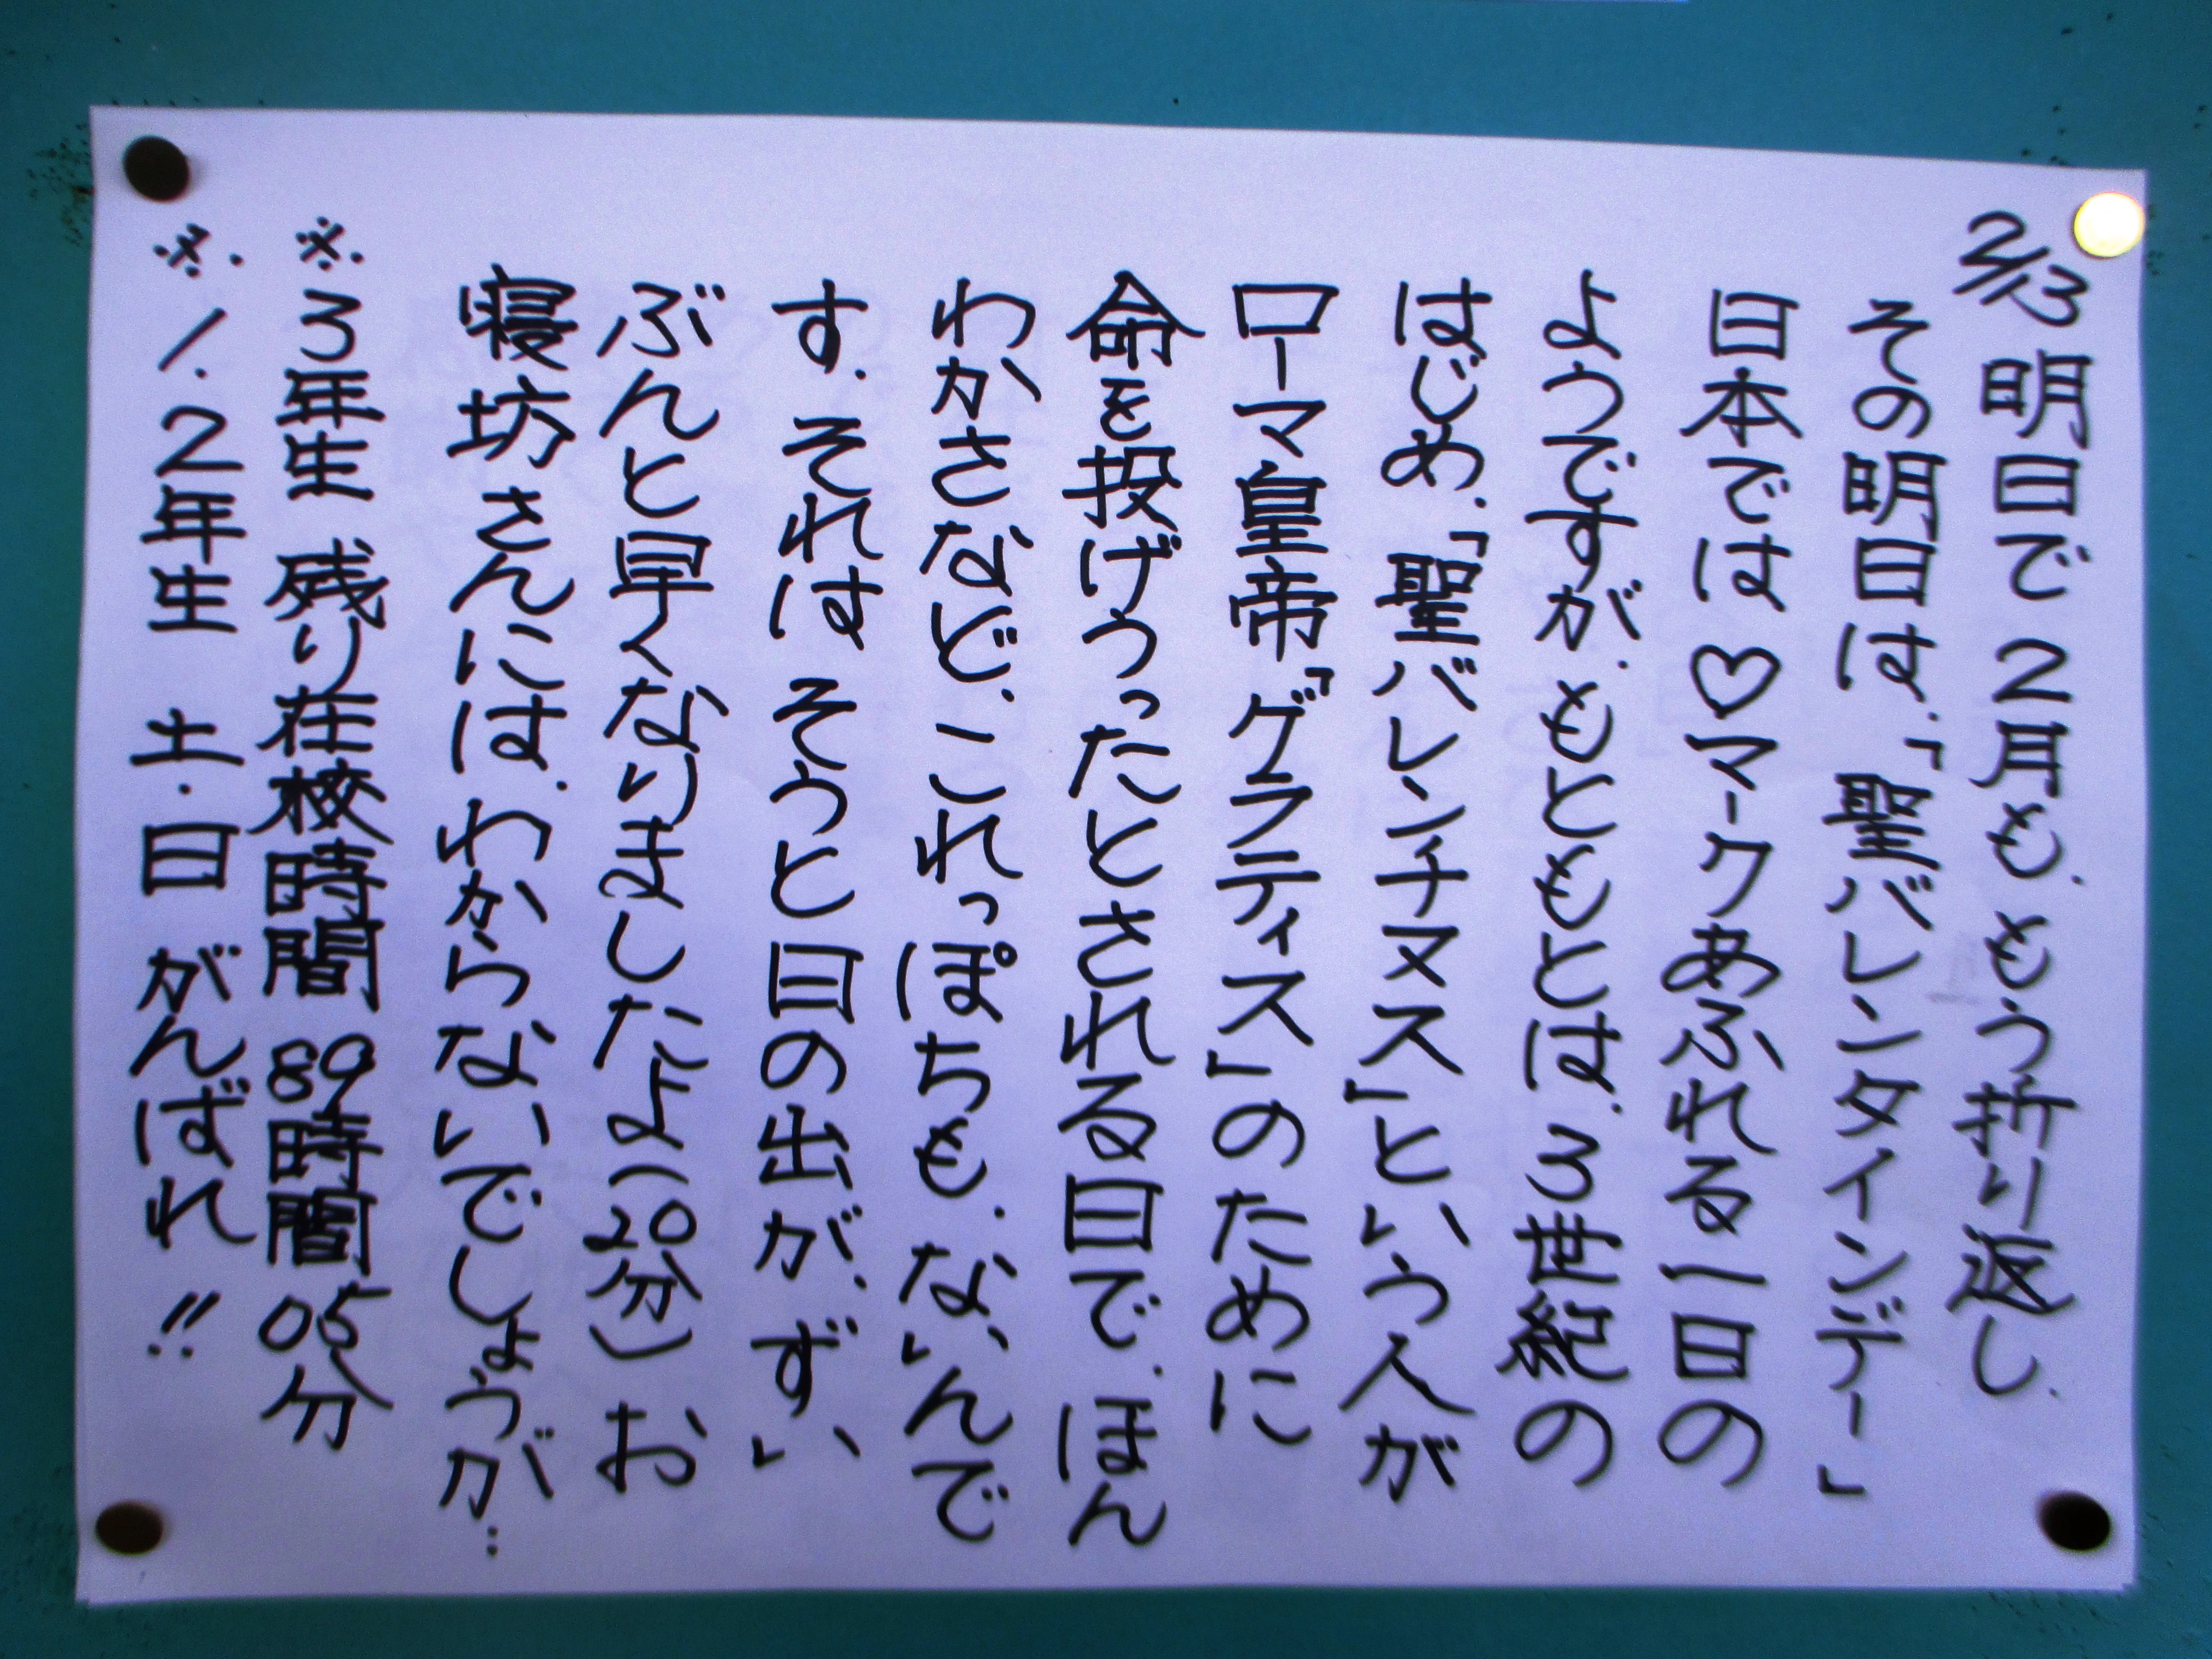 2/13 明日で2月も、もう折り返し、
その明日は、「聖バレンタインデー」
日本では♡マークあふれる一日の
ようですが、もともとは、3世紀の
はじめ、「聖バレンチヌス」という人が
ローマ皇帝「グラディス」のために
命を投げうったとされる日で、ほん
わかさなど、これっぽちも、ないんで
す、それはそうと日の出が、ずい
ぶんと早くなりましたよ(20分)お
寝坊さんには、わからないでしょうが…
※3年生 残り在校時間 89時間05分
※1、2年生 土・日 がんばれ!!